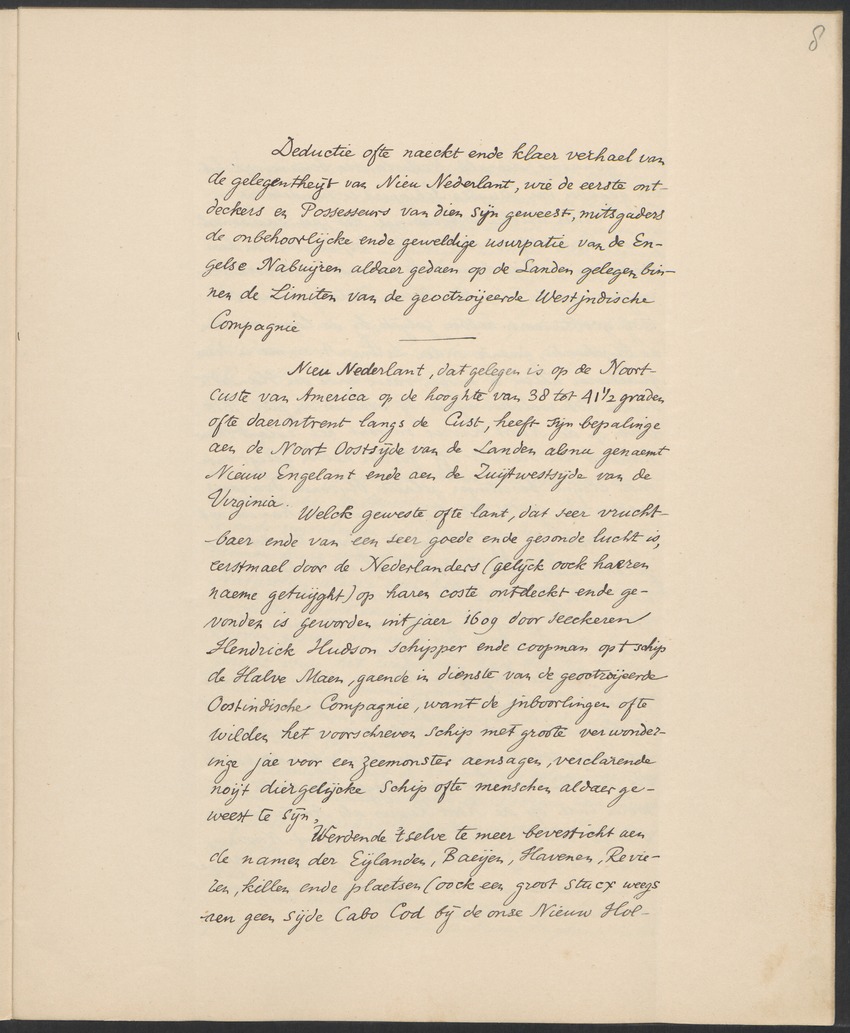 8
Deductie ofte naeckt ende klaer verhael van
de gelegentheijt van Nieu Nederlant, wie de eerste ont-
deckers en Possesseurs van dien sijn geweest, mitsgaders
de onbehoorlijcke ende geweldige usurpatie van de En-
gelse Nabuijren aldaer gedaen op de Landen gelegen bin-
nen de Limiten van de geoctroijeerde Westjndische
Compagnie
Nieu Nederlant, dat gelegen is op de Noort-
custe van America op de hooghte van 38 tot 41 1/2 graden
ofte daerontrent langs de Cust, heeft sijn bepalinge
aen de Noort Oostsijde van de Landen alsnu genaemt
Nieuw Engelant ende aen de Zuijtwestsijde van de
Virginia.
Welck geweste ofte lant, dat seer vrucht-
baer ende van een seer goede ende gesonde lucht is,
eerstmael door de Nederlanders (gelijck oock haeren
naeme getuijght) op haren coste ontdeckt ende ge-
vonden is geworden int jaer 1609 door seeckeren
Hendrick Hudson schipper ende coopman op t schip
de Halve Maen, gaende in dienste van de geoctroijeerde
Oostindische Compagnie, want de jnboorlingen ofte
wilden het voorschreven schip met groote verwonder-
inge jae voor een zeemonster aensagen, verclarende
noijt diergelijcke schip ofte menschen aldaer ge-
weest te sijn,
Werdende 't selve te meer bevesticht aen
de namen der Eijlanden, Baeijen, Havenen, Revie-
ren, killen ende plaetsen (oock een groot stucx weegs
aen geen sijde Cabo Cod bij de onse Nieuw Hol-